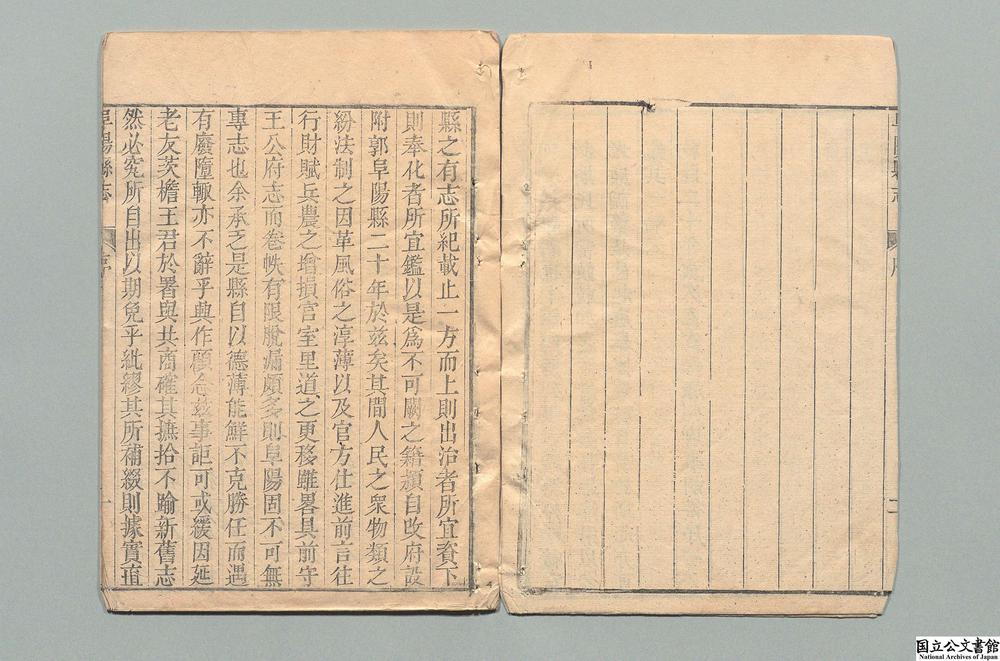 縣之有志所紀載止一方而上則出治者所宜資下
則奉化者所宜鑑以是為不可闕之籍潁自改府設
附郭阜陽縣二十年於茲矣其間人民之衆物類之
紛法制之因革風俗之淳薄以及官方仕進前言往
行財賦兵農之增損宫室里道之更移雖畧具前守
王公府志而卷帙有限脫漏頗多則阜陽固不可無
專志也余承乏是縣自以德薄能鮮不克勝任而遇
有廢墮輙亦不辭乎興作顧念茲事詎可或緩因延
老友茨檐王君於署與共商確其摭拾不踰新舊志
然必究所自出以期免乎紕繆其所補綴則據實直
阜陽縣志
序
一
阜陽縣志
序
二
国立公文書館
National Archives of Japan